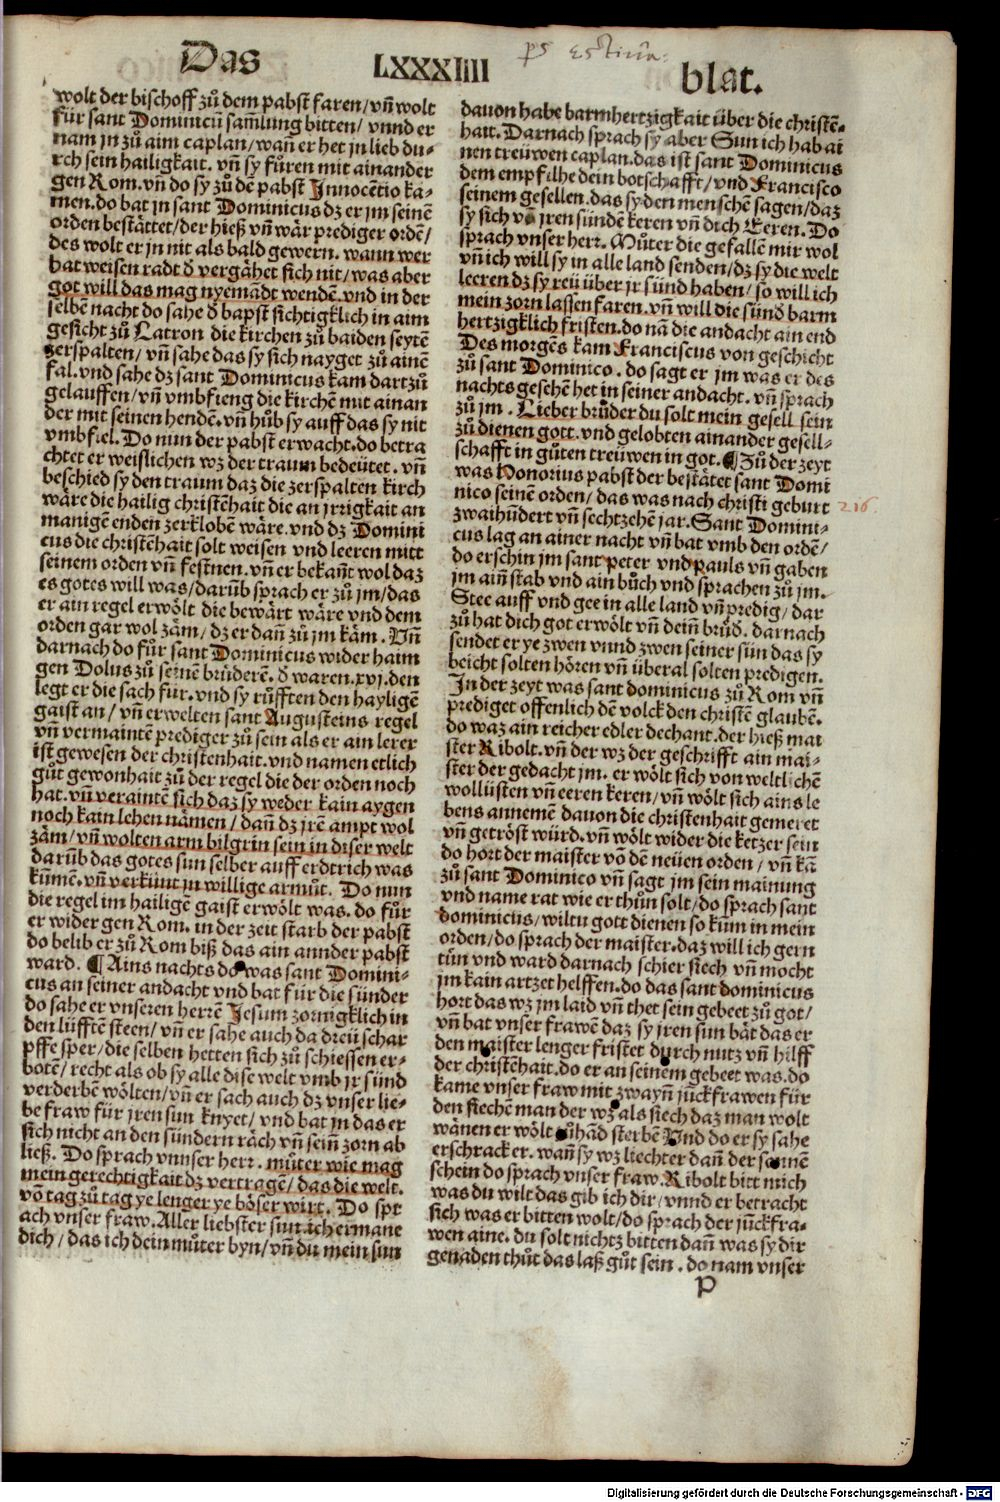 Das LXXXIIII blat.
wolt der bischoff zů dem pabst faren/ vñ wolt
für sant Dominicū sam̃lung bitten/ vnnd er
nam jn zů aim caplan/ wañ er het jn lieb du-
rch sein hailigkait. vñ sy fůren mit ainander
gen Rom. vñ do sy zů dē pabst Innocētio ka-
men. do bat jn sant Dominicus dz er jm seinē
orden bestättet/ der hieß vñ wär prediger ordē/
des wolt er jn nit als bald gewern. wann wer
hat weisen radt d̄ vergähet sich nit/ was aber
got will das mag nyemādt wendē. vnd in der
selbē nacht do sahe d̄ bapst sichtigklich in aim
gesicht zů Latron die kirchen zů baiden seytē
zerspalten/ vñ sahe das sy sich nayget zů ainē
fal. vnd sahe dz sant Dominicus kam dartzů
gelauffen/ vñ vmbfieng die kirchē mit ainan
der mit seinen hendē. vñ hůb sy auff das sy nit
vmbfiel. Do nun der pabst erwacht. do betra
chtet er weißlichen wz der traum bedeütet. vñ
beschied sy den traum daz die zerspalten kirch
wäre die hailig christēhait die an jrrigkait an
manigē enden zerklobē wäre. vnd dz Domini
cus die christēhait solt weisen vnd leeren mitt
seinem orden vñ festnen. vñ er bekañt wol daz
es gotes will was/ darūb sprach er zů jm/ das
er ain regel erwölt die bewärt wäre vnd dem
orden gar wol zäm/ dz er dañ zů jm käm. Vñ
darnach do fůr sant Dominicus wider haim
gen Dolus zů seinē brüderē. d̄ waren. xvj. den
legt er die sach für. vnd sy růfften den hayligē
gaist an/ vñ erwelten sant Augusteins regel
vñ vermaintē prediger zů sein als er ain lerer
ist gewesen der christenhait. vnd namen etlich
gůt gewonhait zů der regel die der orden noch
hat. vñ veraintē sich daz sy weder kain aygen
noch kain lehen nämen/ dañ dz jrē ampt wol
zäm/ vñ wolten arm bilgrin sein in diser welt
darūb das gotes sun selber auff erdtrich was
kūmē. vñ verkünt jn willige armůt. Do nun
die regel im hailigē gaist erwölt was. do fůr
er wider gen Rom. in der zeit starb der pabst
do belib er zů Rom biß das ain annder pabst
ward. ¶ Ains nachts do was sant Domini-
cus an seiner andacht vnd bat für die sünder
do sahe er vnseren herrē Jesum zornigklich in
den lüfftē steen/ vñ er sahe auch da dreü schar
pffe sper/ die selben hetten sich zů schiessen er-
botē/ recht als ob sy alle dise welt vmb jr sünd
verderbē wölten/ vñ er sach auch dz vnser lie-
be fraw für jren sun knyet/ vnd bat jn das er
sich nicht an den sündern räch vñ sein̄ zorn ab
ließ. Do sprach vnnser herr. můter wie mag
mein gerechtigkait dz vertragē/ das die welt.
vō tag zů tag ye lenger ye böser wirt. Do spr
ach vnser fraw. Aller liebster sun ich ermane
dich/ das ich dein můter byn/ vñ du mein sun
dauon habe barmhertzigkait über die christē-
hait. Darnach sprach sy aber Sun ich hab ai
nen treüwen caplan. das ist sant Dominicus
dem empfilhe dein botschafft/ vnd Francisco
seinem gesellen. das sy den menschē sagen/ daz
sy sich vō jren sündē keren vñ dich Eeren. Do
sprach vnser herr. Můter die gefallē mir wol
vñ ich will sy in alle land senden/ dz sy die welt
leeren dz sy reü über jr sünd haben/ so will ich
mein zorn lassen faren. vñ will die sünd̄ barm
hertzigklich fristen. do nā die andacht ain end
Des morgēs kam Franciscus von geschicht
zů sant Dominico. do sagt er jm was er des
nachts gesehē het in seiner andacht. vñ sprach
zů jm. Lieber brůder du solt mein gesell sein
zů dienen gott. vnd gelobten ainander gesell-
schafft in gůten treüwen in got. ¶ Zů der zeyt
was Honorius pabst der bestätet sant Domi
nico seinē orden/ das was nach christi geburt
zwaihūdert vñ sechtzehē jar. Sant Domini-
cus lag an ainer nacht vñ bat vmb den ordē/
do erschin jm sant peter vnd pauls vñ gaben
jm ain̄ stab vnd ain bůch vnd sprachen zů jm.
Stee auff vnd gee in alle land vñ predig/ dar
zů hat dich got erwölt vñ dein̄ brůd̄. darnach
sendet er ye zwen vnnd zwen seiner sün das sy
beicht solten hören vñ überal solten predigen.
In der zeyt was sant dominicus zů Rom vñ
prediget offenlich dē volck den christē glaubē.
do waz ain reicher edler dechant. der hieß mai
ster Ribolt. vñ der wz der geschrifft ain mai-
ster der gedacht jm. er wölt sich von weltlichē
wollüsten vñ eeren keren/ vñ wölt sich ains le
bens annemē dauon die christenhait gemeret
vñ getröst würd. vñ wölt wider die ketzer sein
do hort der maister vō dē neüen orden/ vñ kā
zů sant Dominico vñ sagt jm sein mainung
vnd name rat wie er thůn solt/ do sprach sant
dominicus/ wiltu gott dienen so kūm in mein
orden/ do sprach der maister. daz will ich gern
tůn vnd ward darnach schier siech vñ mocht
jm kain artzet helffen. do das sant dominicus
hort das wz jm laid vñ thet sein gebeet zů got/
vñ bat vnser frawē daz sy jren sun bät das er
den maister lenger fristet durch nutz vñ hilff
der christēhait. do er an seinem gebeet was. do
kame vnser fraw mit zwayñ jūckfrawen für
den siechē man der wz als siech daz man wolt
wänen er wölt zůhād sterbē Vnd do er sy sahe
erschrack er. wañ sy wz liechter dañ der sonnē
schein do sprach vnser fraw. Ribolt bitt mich
was du wilt das gib ich dir/ vnnd er betracht
sich was er bitten wolt/ do sprach der jūckfra-
wen aine. du solt nichtz bitten dañ was sy dir
genaden thůt das laß gůt sein. do nam vnser
p
216.
Digitalisierung gefördert durch die Deutsche Forschungsgemeinschaft - DFG